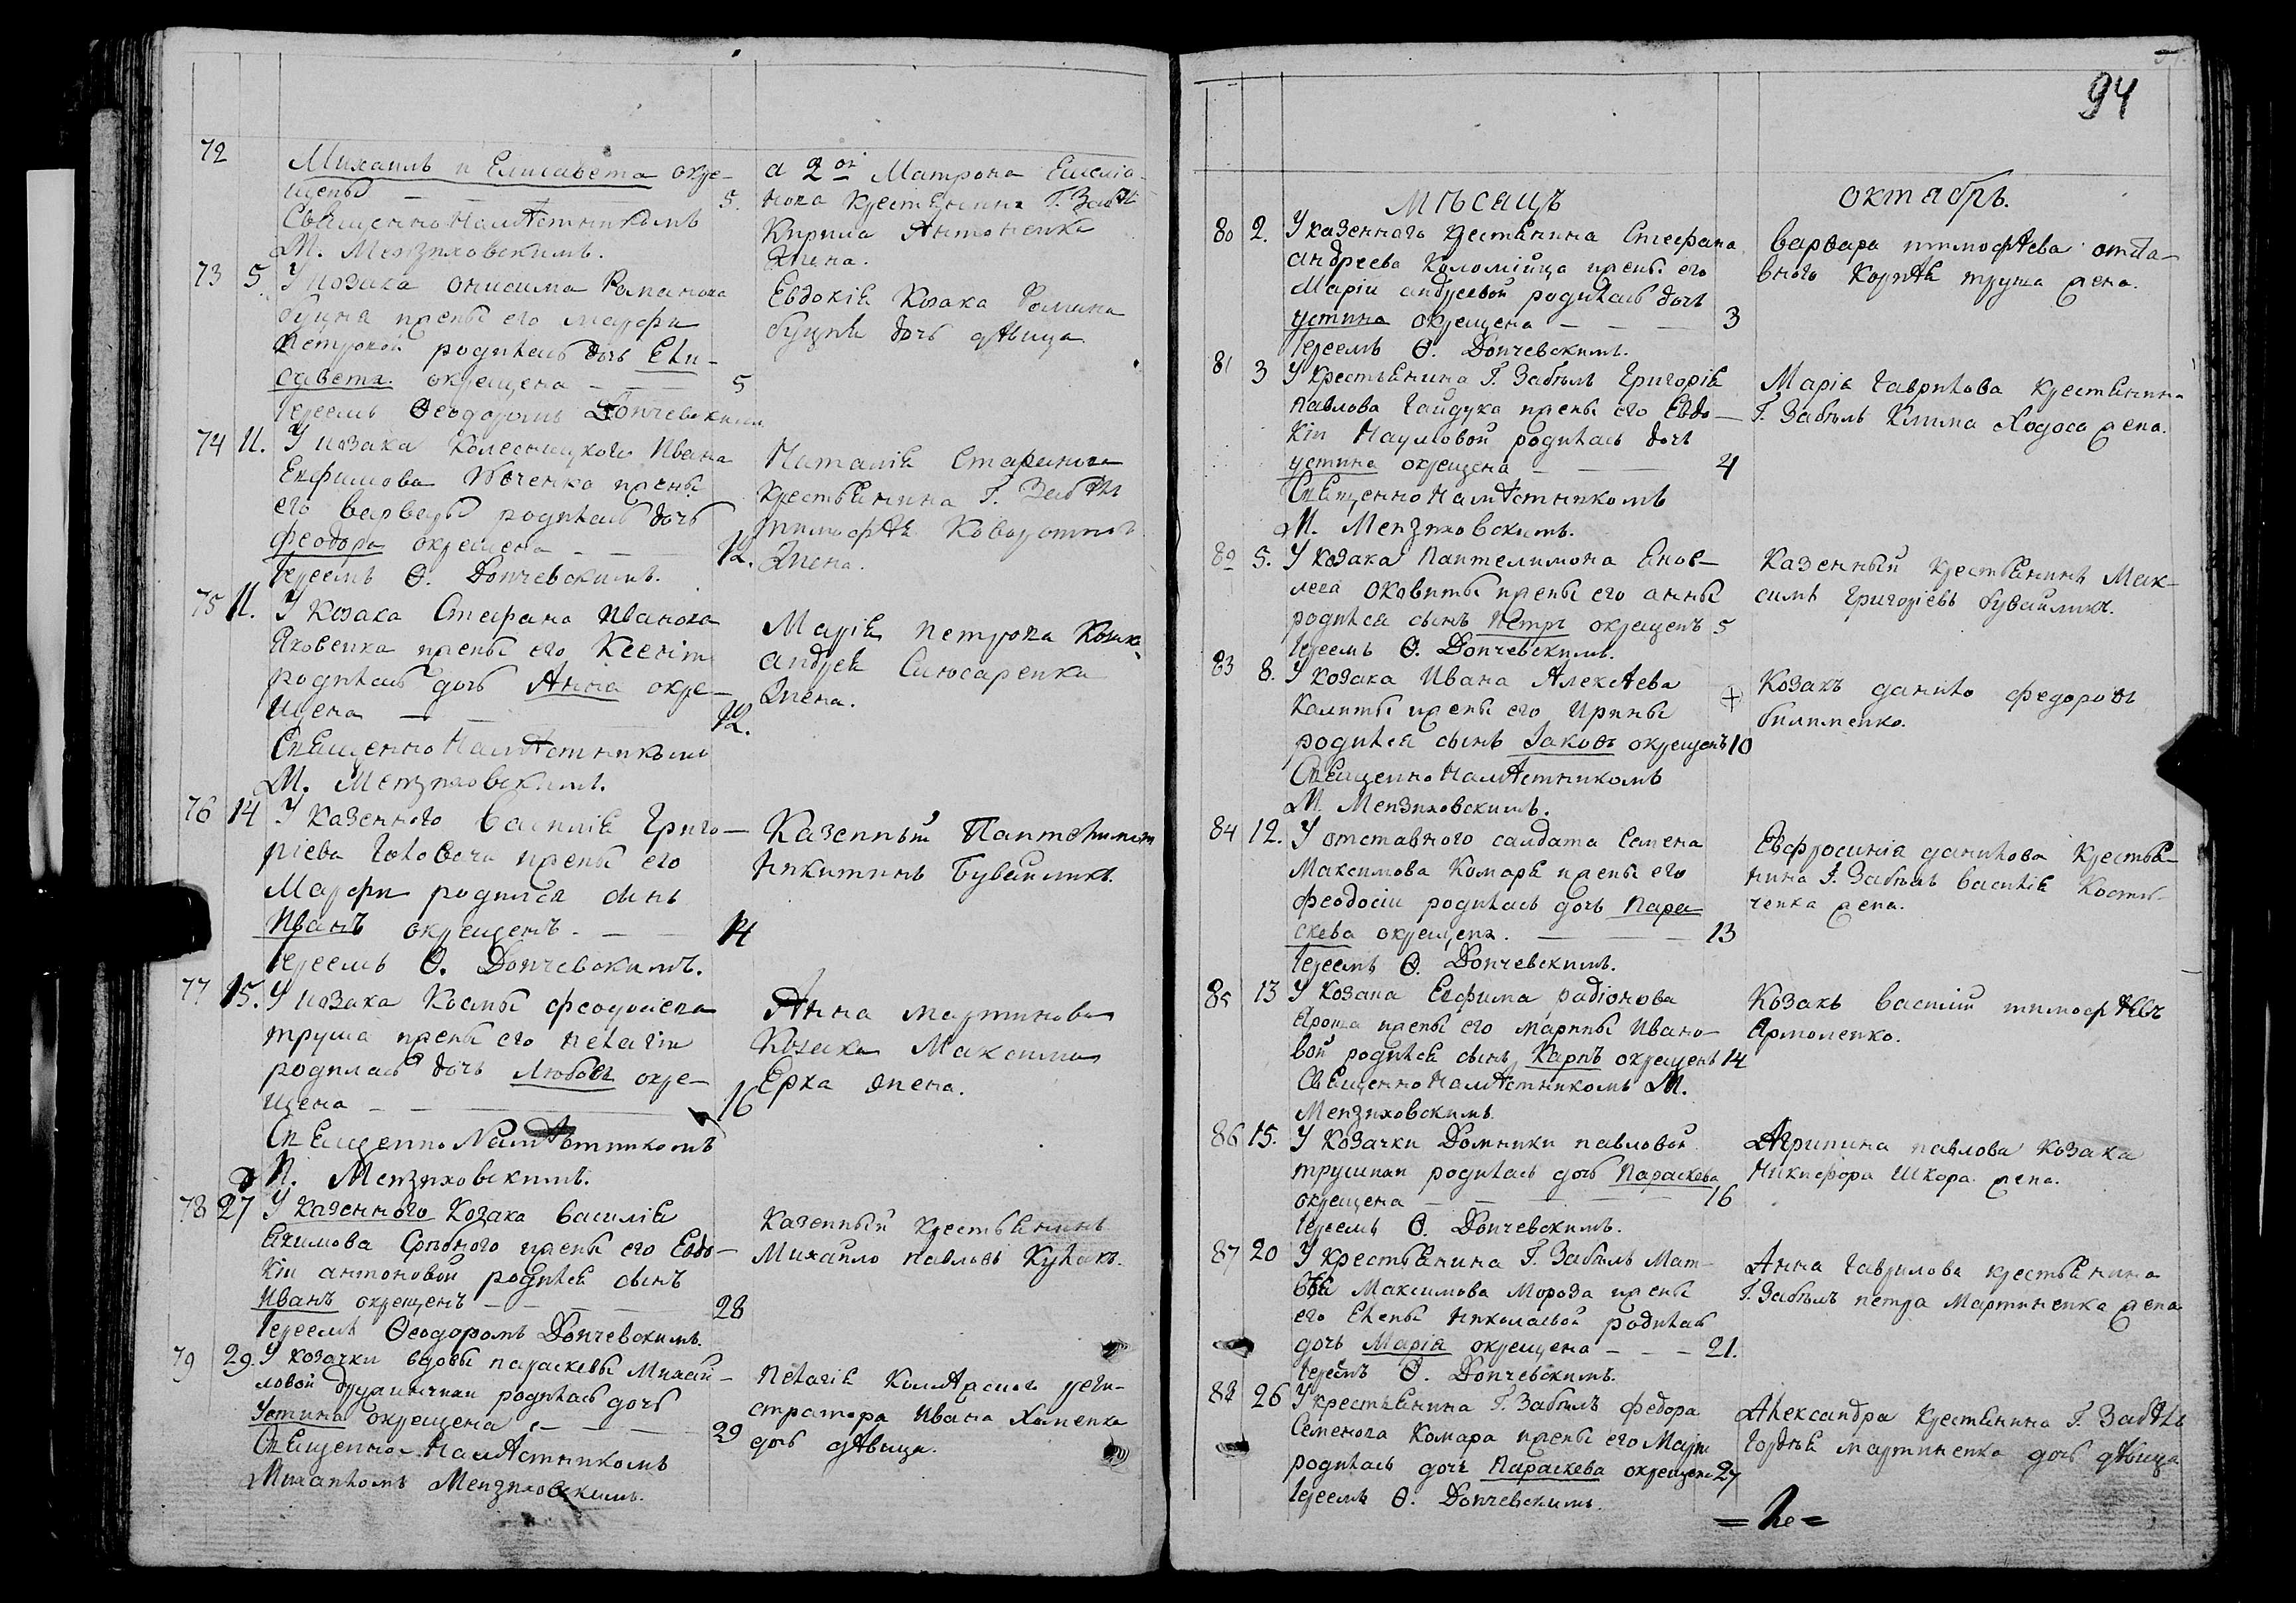 72
Михаилъ и Елисавета окре-
щены 5.
Священно Намѣстникомъ
М. Мензиховскимъ.
а 2ой Матрона Емелiа-
нова Крестьянина Г. Забѣл
Кирила Антоненка
жена.
73 5. У козака Онисима Романова
жены его Марфи
Петровой родилась дочь Ели-
савета окрещена 5
Iереемъ Ѳеодоромъ Дончевскимъ
Евдокiя Козака Романа
дочь дѣвица
74 11. У козака Колесницкого Ивана
Евфимова жены
его Варвары родилась дочь
феодора окрещена 12.
Iереемъ Ѳ. Дончевскимъ.
Наталiя
Крестьянина Г. Забѣл
тимофѣя
жена.
75 11. У Козака Стефана Иванова
Яховенка жены его Ксенiи
родилась дочь Анна окре-
щена 12.
Священно Намѣстникомъ
М. Мензиховскимъ.
Марiя Петрова Козака
андрея Слюсаренка
жена.
76 14 У казенного Василiя Григо-
рiева Головача жены его
Марфи родился сынъ
Иванъ окрещенъ 14
Iереемъ Ѳ. Дончевскимъ.
Казенный Пантелимон
Никитинъ Бувайликъ.
77 15. У козака Космы феодосiева
труша жены его Пелагiи
родилась дочь Любовь окре-
щена 16
Священно Намѣстникомъ
М. Мензиховскимъ.
Анна мартинова
Козака Максима
Ерха жена.
78 27 У казенного Козака Василiя
Якимова жены его Евдо-
кiи антоновой родился сынъ
Иванъ окрещенъ 28
Iереемъ Ѳеодоромъ Дончевскимъ.
Казенный крестьянинъ
Михайло павловъ Кулакъ.
79 29. У козачки вдовы параскевы Михай-
ловой родилась дочь
Устина окрещена 29
Священно Намѣстникомъ
Михаиломъ Мензиховскимъ.
Пелагiя Колѣжского реги-
стратора Ивана Хоменка
дочь дѣвица.
94
мѣсяцъ октябрь.
80 2. У казенного крестьянина Стефана
андреева Коломiйца жены его
Марiи андреевой родилась дочь
устина окрещена 3
Iереемъ Ѳ. Дончевскимъ.
Варвара тимофѣева отста-
вного Корнѣя труша жена.
81 3 У крестьянина Г. Забѣлъ Григорiя
павлова Гайдука жены его Евдо-
кiи Наумовой родилась дочь
устина окрещена 4
Священно Намѣстникомъ
М. Мензиховскимъ.
Марiя Гаврилова крестьянина
Г. Забѣлъ Клима Ходоса жена.
82 5. У козака Пантелимона
Оковиты жены его анны
родился сынъ Петръ окрещенъ 5
Iереемъ Ѳ. Дончевскимъ.
Казенный крестьянинъ Мак-
симъ Григорiевъ бувайликъ.
83 8. У козака Ивана Алексѣева
Калиты жены его Ирины
родился сынъ Iаковъ окрещенъ 10
Священно Намѣстникомъ
М. Мензиховскимъ.
Козакъ данило федоровъ
филипенко.
84 12. У отставного салдата Семена
Максимова Комаря жены его
феодосiи родилась дочь Пара-
скева окрещена. 13
Iереемъ Ѳ. Дончевскимъ.
Евфросинiя данилова крестья-
нина Г. Забѣлъ Василiя Косты-
ченка жена.
85 13 У козака Евфима радiонова
Яроша жены его Марины Ивано-
вой родился сынъ Карпъ окрещенъ 14
Священно Намѣстникомъ М.
Мензиховскимъ.
Козакъ Василiй тимофѣевъ
Ярмоленко.
86 15. У козачки Домники павловой
трушихи родилась дочь Параскева
окрещена 16
Iереемъ Ѳ. Дончевскимъ.
Агрипина павлова козака
Никифора Шкора жена.
87 20 У крестьянина Г. Забѣлъ Мат-
вѣя Максимова Мороза жены
его Елены Николаевой родилась
дочь Марiя окрещена 21.
Iереемъ Ѳ. Дончевскимъ.
Анна Гаврилова крестьянина
Г. Забѣлъ петра Мартиненка жена
88 26 У крестьянина Г. Забѣлъ федора
Семенова Комара жены его Марiи
родилась дочь Параскева окрещена 27
Iереемъ Ѳ. Дончевскимъ.
Александра крестьянина Г. Забѣлъ
Гордѣя мартиненка дочь дѣвица